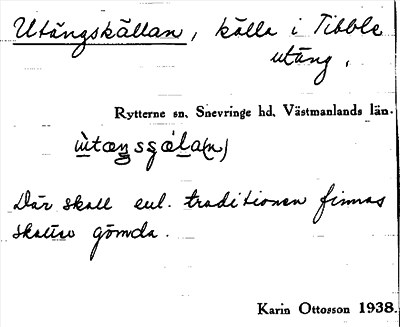 Utängskällan, källa i Tibble
utäng.
Rytterne sn, Snevringe hd, Västmanlands län.
Där skall enl. traditionen finnas
skatter gömda.
Karin Ottosson 1938.